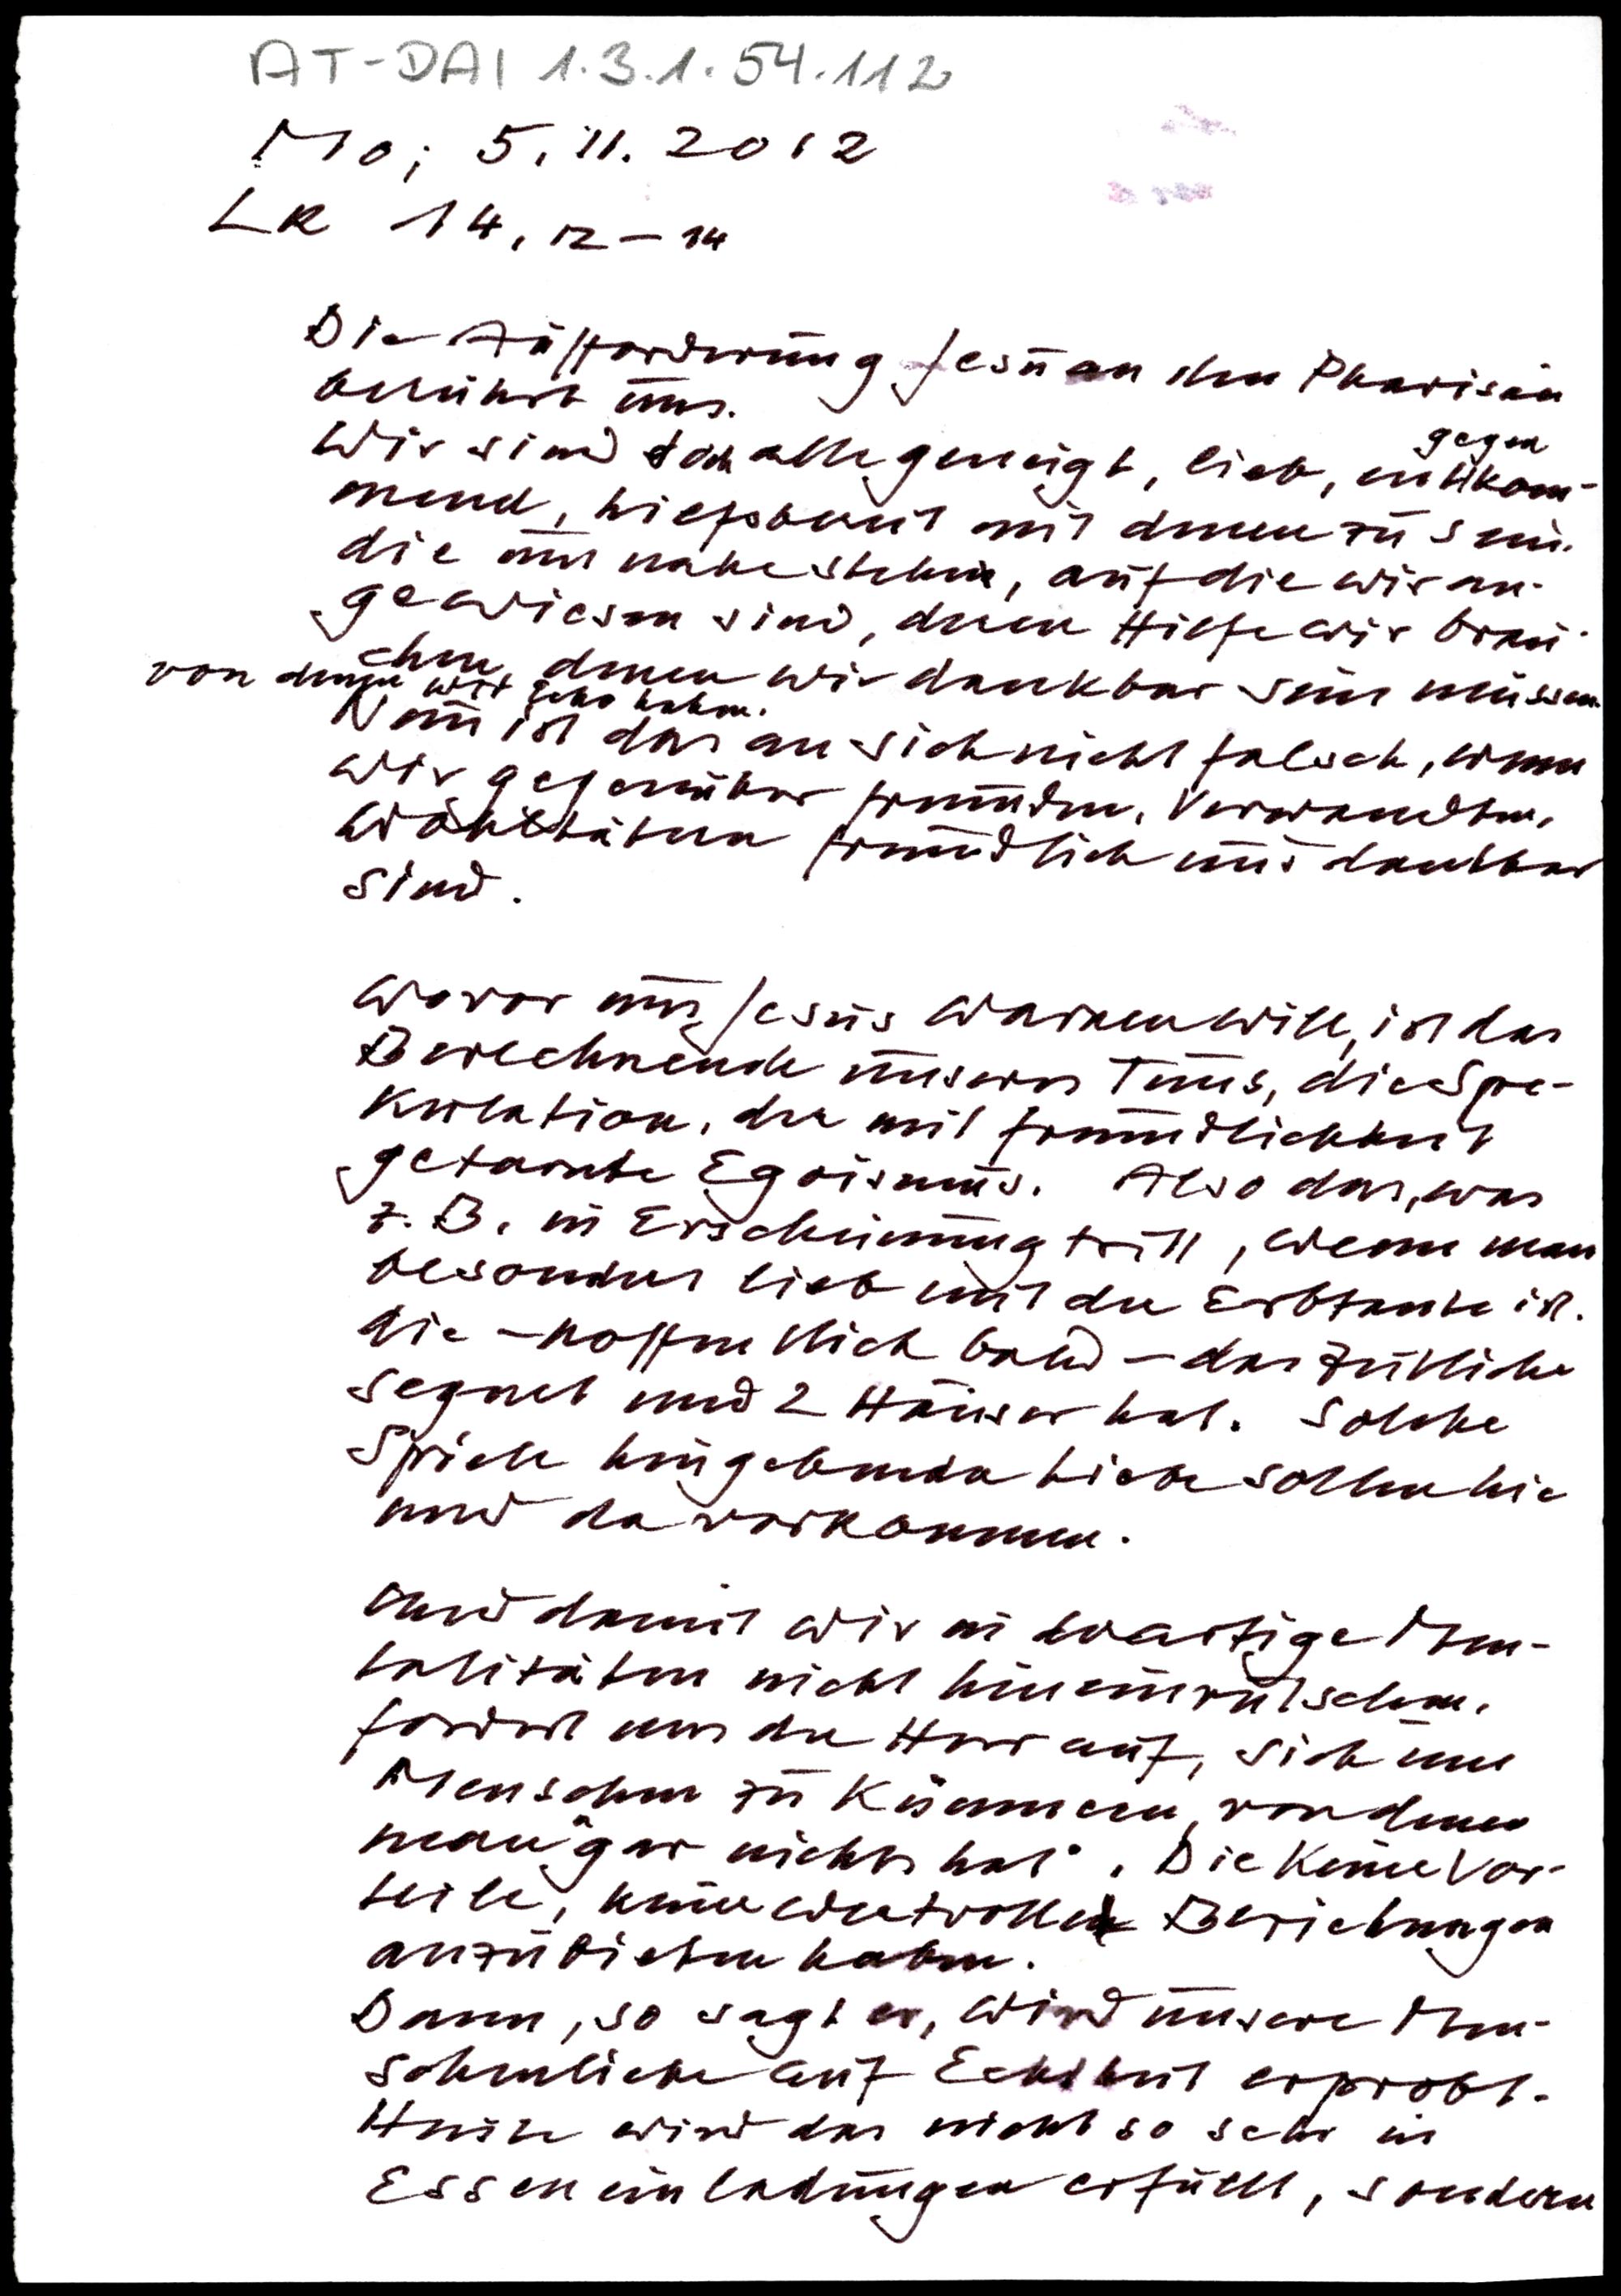 AT-DAI 1.3.1.54.112
Mo, 5.11.2012
Lk 14, 12-14
Die Aufforderung Jesu an den Pharisäer
berührt uns.
Wir sind doch alle geneigt, lieb, entgegenkom-
mend, hilfsbereit mit denen zu sein.
die uns nahestehen, auf die wir an-
gewiesen sind, deren Hilfe wir brau-
chen, denen wir dankbar sein müssen.
von denen wir haben.
Nun ist das an sich nicht falsch, wenn
wir gegenüber Freunden, Verwandten,
Wohltätern freundlich und dankbar
sind.
Wovor uns Jesus warnen will, ist das
Berechnende unseres Tuns, die Spe-
kulation, der mit Freundlichkeit
getarnte Egoismus. Also das, was
z.B. in Erscheinung tritt, wenn man
besonders lieb mit der Erbtante ist.
die - hoffentlich bald - das Zeitliche
segnet und 2 Häuser hat. Solche
Spiele hingebender Liebe sollen hie
und da vorkommen.
Und damit wir in derartige Men-
talitäten nicht hineinrutschen,
fordert uns der Herr auf, sich um
Menschen zu kümmern, von denen
man "gar nichts hat". Die keine Vor-
teile, keine wertvollen Beziehungen
anzubieten haben.
Dann, so sagt er, wird unsere Men-
schenliebe auf Echtheit erprobt.
Heute wird das nicht so sehr in
Esseneinladungen erfüllt, sondern